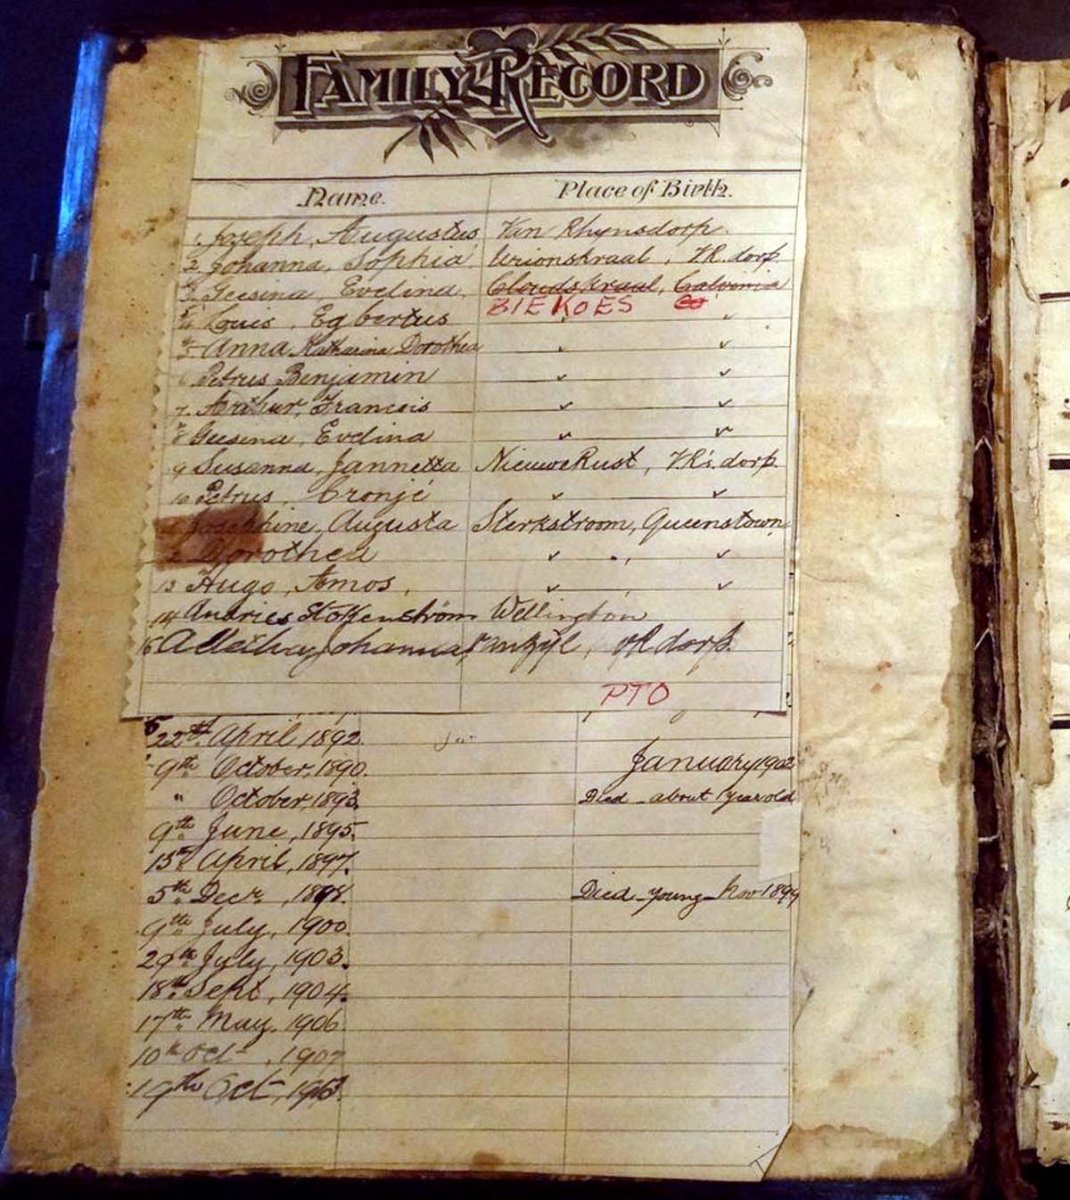 FAMILY RECORD
Name. Place of Birth.
1. Joseph, Augustus Van Rhynsdorp.
2. Johanna, Sophia Urionskraal, V.R. dorp.
3. Geesina, Evelina, Cloudskraal, Calvinia
BIEKOES Co
4. Louis, Egbertus " "
5 Anna Katharina Dorothea " "
6 Petrus Benjamin " "
7. Arthur, Francois " "
8 Geesina, Evelina " "
9 Susanna, Jannetta NieuweRust, V.R's dorp.
10 Petrus, Cronjé " "
Josephine, Augusta Sterkstroom, Queenstown
Dorothea " " "
13 Hugo, Amos, " "
14 Andries Stokenström Wellington
15 Aletha Johanna Vanzyl, VR dorp.
PTO
22nd April 1892.
9th October, 1890. January 1902
" October, 1893. Died about 1 year old
9th June, 1895.
15th April, 1897.
5th Decr, 1898. Died young Nov 1899
9th July, 1900.
29th July, 1903.
18th Sept, 1904.
17th May, 1906
10th Oct, 1907
19th Oct, 1913.